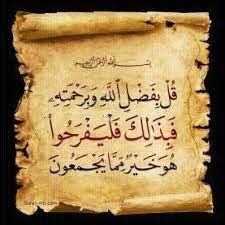 بسم الله الرحمن الرحيم
قُلْ بِفَضْلِ ٱللَّهِ وَبِرَحْمَتِهِۦ
فَبِذَٰلِكَ فَلْيَفْرَحُوا۟
هُوَ خَيْرٌ مِّمَّا يَجْمَعُونَ